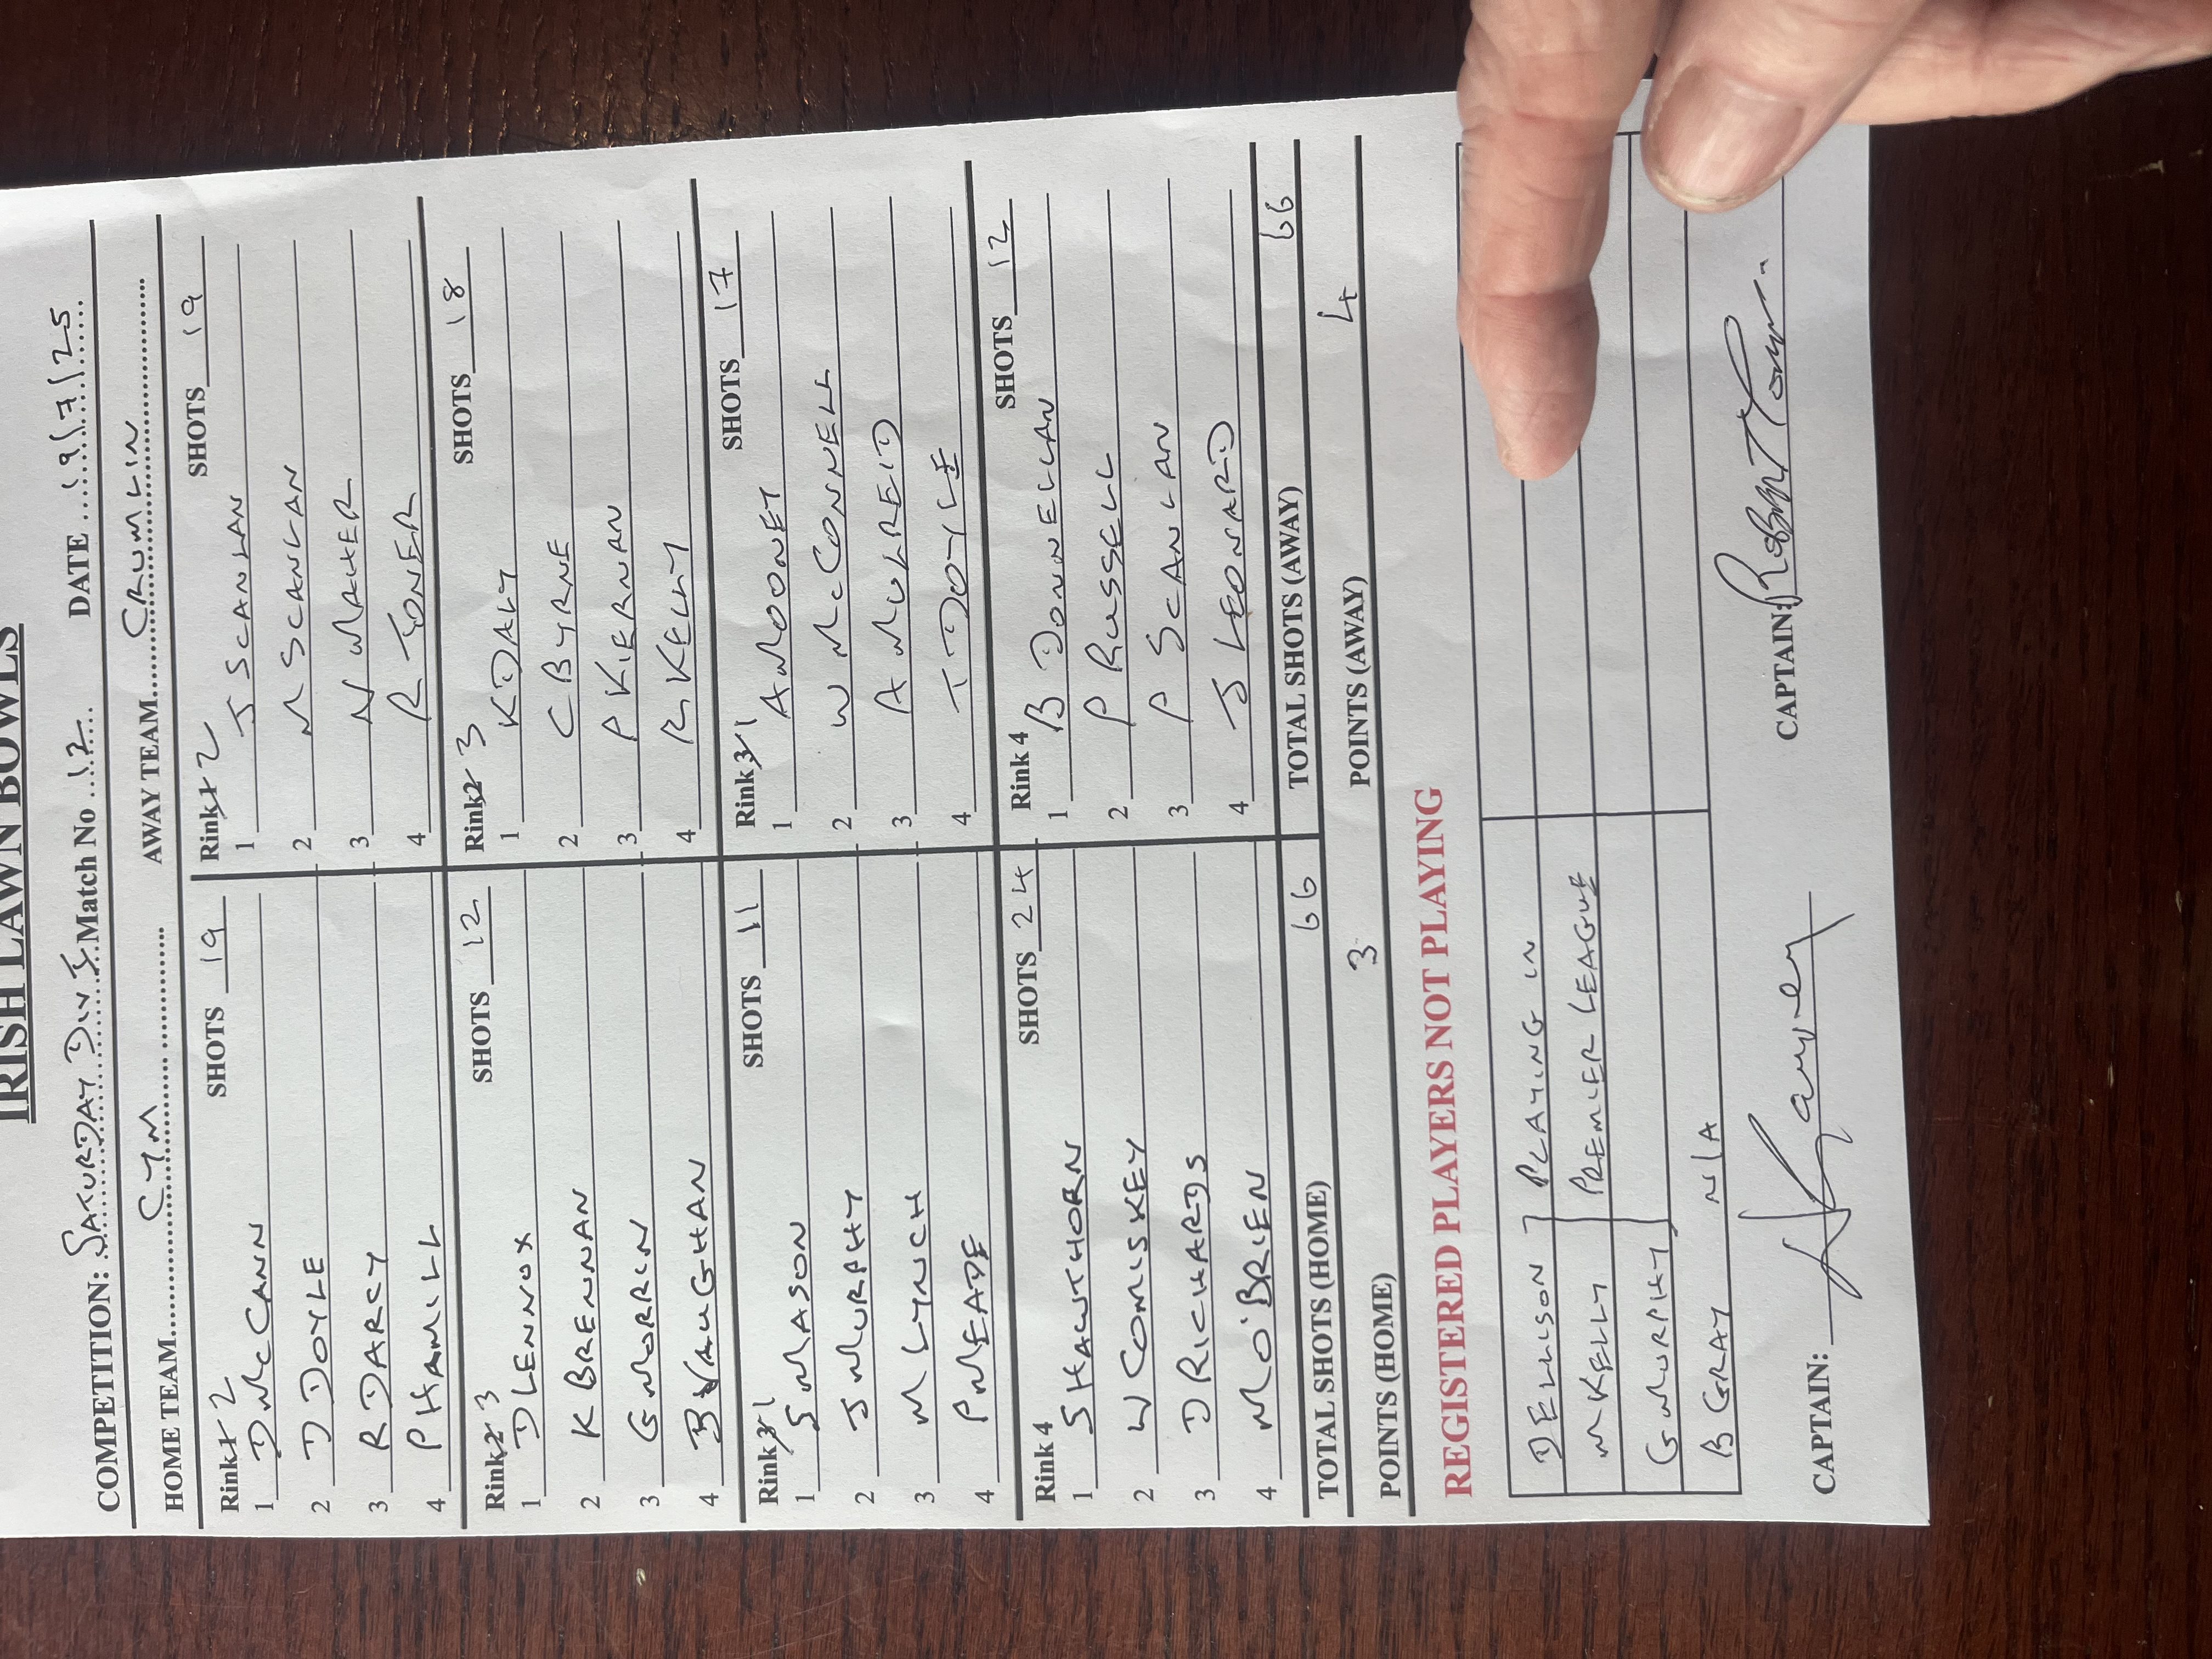 IRISH LAWN BOWLS
COMPETITION: SATURDAY DIV 1 Match No 12 DATE 19/7/25
HOME TEAM CYM AWAY TEAM CRUMLIN
Rink 2 SHOTS 19
1 D McCANN
2 D DOYLE
3 R DARCY
4 P HAMILL
Rink 2 SHOTS 19
1 J SCANLAN
2 M SCANLAN
3 N MAHER
4 R TONER
Rink 3 SHOTS 12
1 D LENNOX
2 K BRENNAN
3 G MORRIN
4 B VAUGHAN
Rink 3 SHOTS 18
1 K DALY
2 C BYRNE
3 P KIERNAN
4 R KELLY
Rink 1 SHOTS 11
1 S MASON
2 J MURPHY
3 M LYNCH
4 P MEADE
Rink 1 SHOTS 17
1 A MOONEY
2 W McCONNELL
3 A MULREID
4 T DOYLE
Rink 4 SHOTS 24
1 S HAWTHORN
2 W COMISKEY
3 D RICHARDS
4 M O'BRIEN
Rink 4 SHOTS 12
1 B DONNELLAN
2 P RUSSELL
3 P SCANLAN
4 J LEONARD
TOTAL SHOTS (HOME) 66 TOTAL SHOTS (AWAY) 66
POINTS (HOME) 3 POINTS (AWAY) 4
REGISTERED PLAYERS NOT PLAYING
D ELLISON PLAYING IN
M KELLY PREMIER LEAGUE
G MURPHY
B GRAY N/A
CAPTAIN: CAPTAIN: Robert Toner